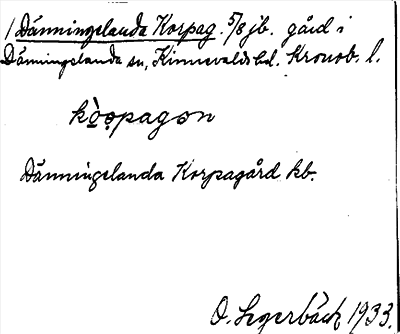 1 Dänningelanda Korpag. 5/8 jb. gård i
Dänningelanda sn, Kinnevalds hd. Kronob. l.
kòrpagɔn
Dänningelanda Korpagård kb.
O. Segerbäck 1933.